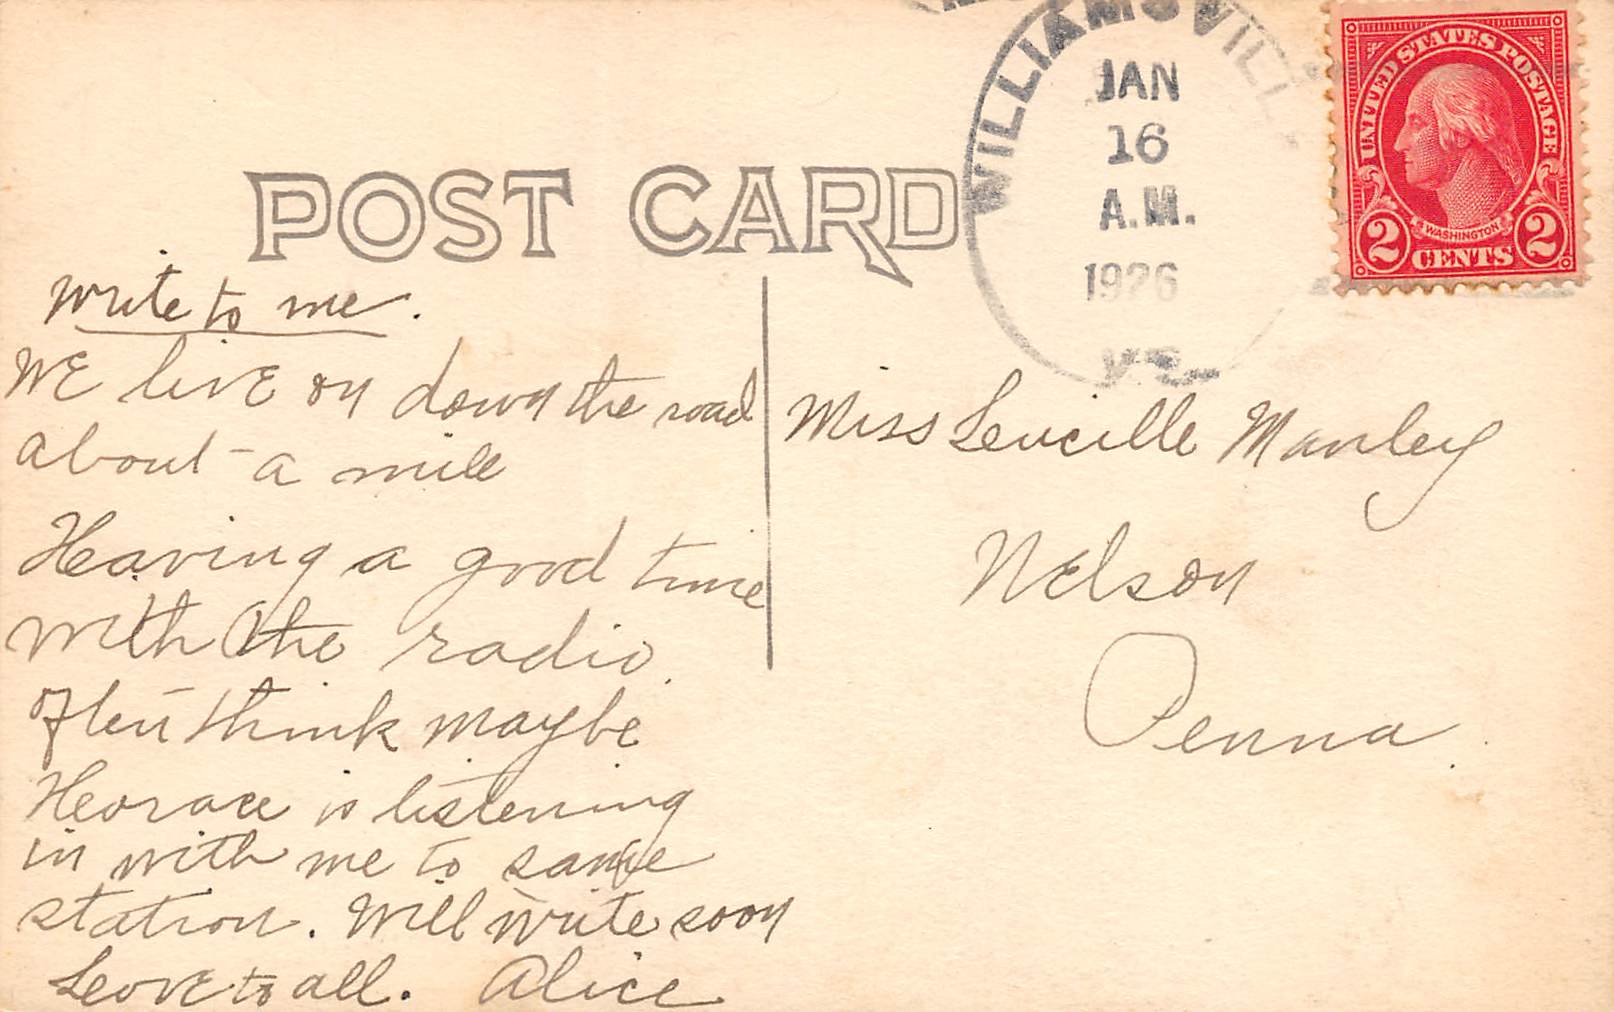 POST CARD
WILLIAMSVILL
JAN
16
A.M.
1926
UNITED STATES POSTAGE
WASHINGTON
2 CENTS 2
Write to me.
We live on down the road
about a mile
Having a good time
with the radio.
Often think maybe
Horace is listening
in with me to same
station. Will write soon
Love to all. Alice
Miss Lucille Manley
Nelson
Penna.